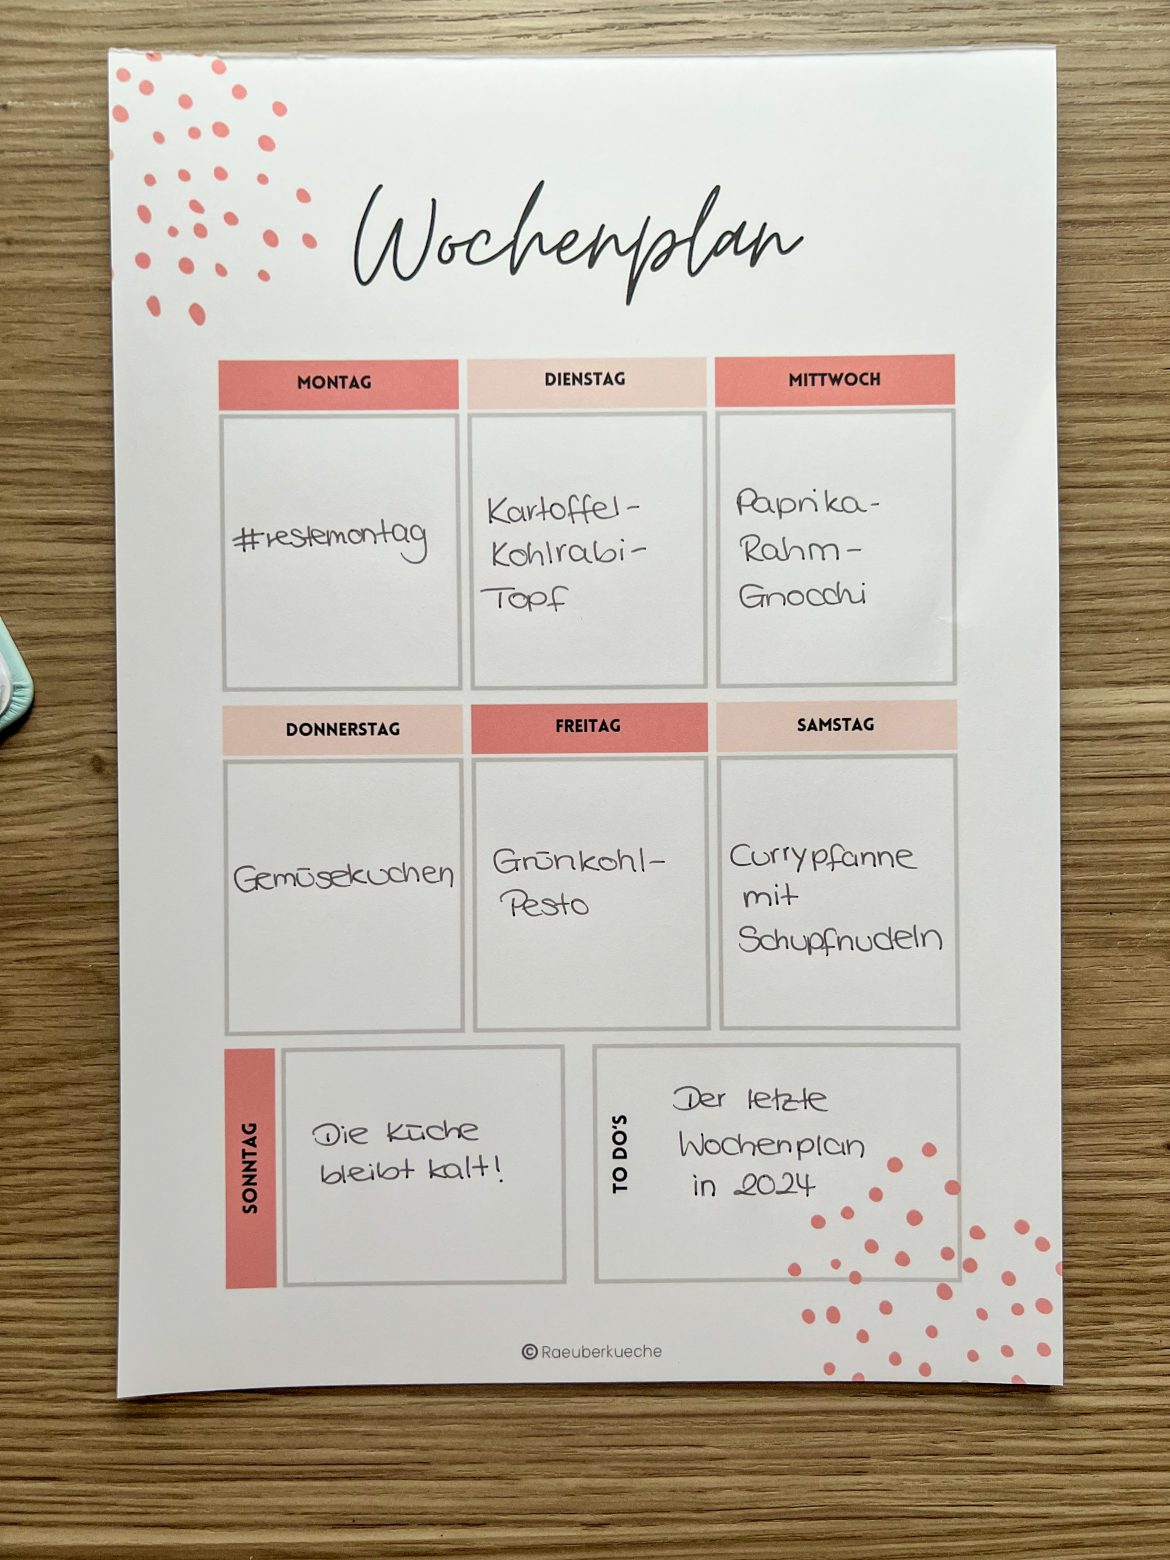 Wochenplan
MONTAG
#restemontag
DIENSTAG
Kartoffel-
Kohlrabi-
Topf
MITTWOCH
Paprika-
Rahm-
Gnocchi
DONNERSTAG
Gemüsekuchen
FREITAG
Grünkohl-
Pesto
SAMSTAG
Currypfanne
mit
Schupfnudeln
SONNTAG
Die Küche
bleibt kalt!
TO DO'S
Der letzte
Wochenplan
in 2024
© Raeuberkueche